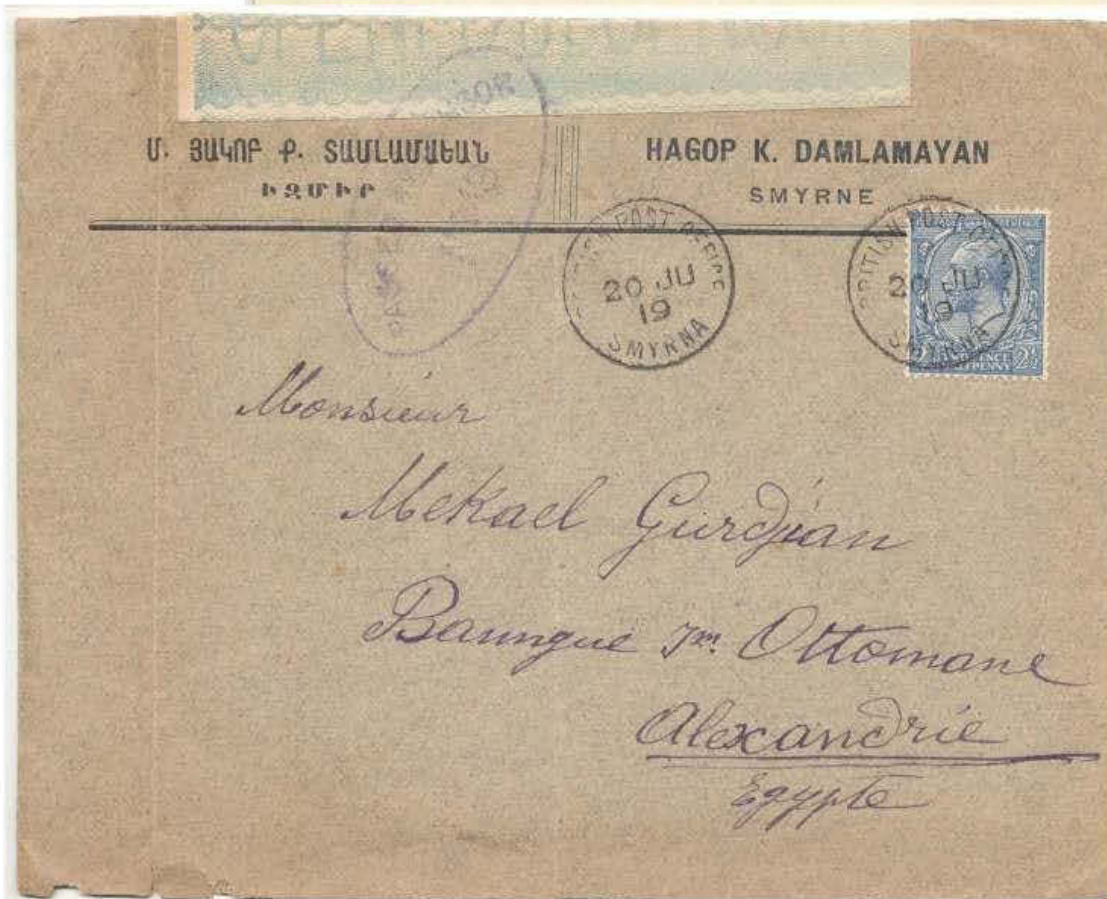 Մ. ՅԱԿՈԲ Ք. ՏԱՄԼԱՄԱԵԱՆ
ԻԶՄԻՐ
HAGOP K. DAMLAMAYAN
SMYRNE
BRITISH POST OFFICE
20 JU
19
SMYRNA
BRITISH POST OFFICE
20 JU
19
SMYRNA
2½
Monsieur
Mekael Gurdjian
Baunque Im. Ottomane
Alexandrie
Egypte